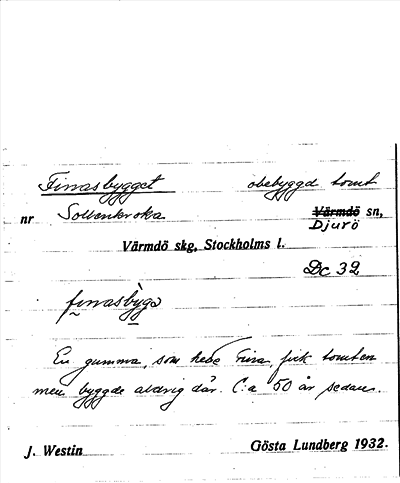 Finasbygget obebyggd tomt
nr Sollenkroka Värmdö sn,
Djurö
Värmdö skg, Stockholms l.
Dc 32
finasbygə
En gumma, som hette Fina, fick tomten
men byggde aldrig där. C:a 50 år sedan.
J. Westin Gösta Lundberg 1932.